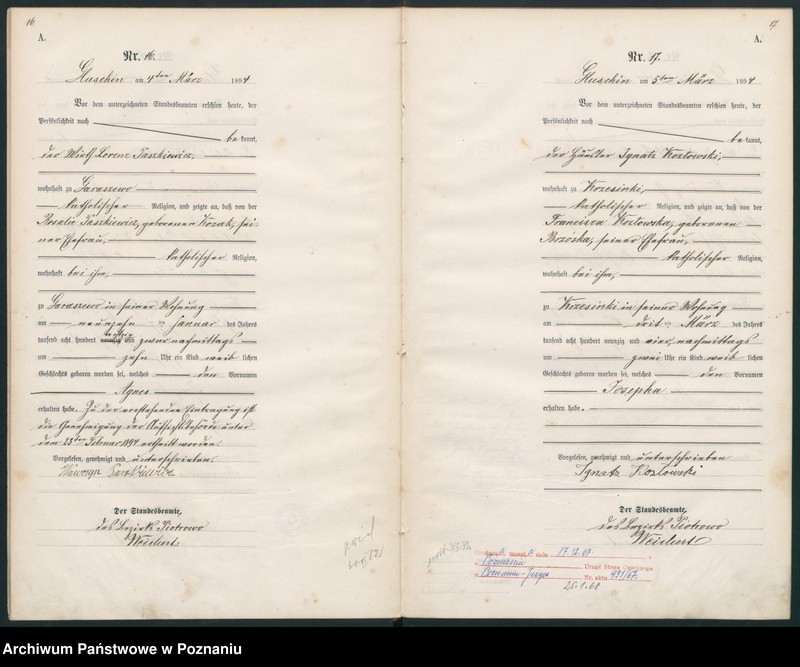 16
A.
Nr. 16.
Gluschin am 4ten März 1894
Vor dem unterzeichneten Standesbeamten erschien heute, der
Persönlichkeit nach
be kannt,
der Wirth Lorenz Paszkiewicz,
wohnhaft zu Garaszewo
katholischer Religion, und zeigte an, daß von der
Rosalie Paszkiewicz, geborenen Kozak, sei-
ner Ehefrau,
katholischer Religion,
wohnhaft bei ihm,
zu Garaszewo in seiner Wohnung
am neunzehn ten Januar des Jahres
tausend acht hundert zwar nachmittags
um zehn Uhr ein Kind weib lichen
Geschlechts geboren worden sei, welches den Vornamen
Agnes
erhalten habe. Zu der vorstehenden Eintragung ist
die Genehmigung der Aufsichtsbehörde unter
dem 23ten Februar 1894 ertheilt worden.
Vorgelesen, genehmigt und unterschrieben
Wawrzyn
Der Standesbeamte,
des Bezirks Piotrowo
Weichert
17
A.
Nr. 17.
Gluschin am 5ten März 1894
Vor dem unterzeichneten Standesbeamten erschien heute, der
Persönlichkeit nach
be kannt,
der Häusler Ignatz Kozlowski,
wohnhaft zu Krzesinki,
katholischer Religion, und zeigte an, daß von der
Francisca Kozlowska, geborenen
Brzoska, seiner Ehefrau,
katholischer Religion,
wohnhaft bei ihm,
zu Krzesinki in seiner Wohnung
am drit ten März des Jahres
tausend acht hundert neunzig und vier, nachmittags
um zwei Uhr ein Kind weib lichen
Geschlechts geboren worden sei, welches den Vornamen
Josepha
erhalten habe.
Vorgelesen, genehmigt und unterschrieben
Ignatz Kozlowski
Der Standesbeamte,
des Bezirks Piotrowo
Weichert
17.12.67
Urząd Stanu Cywilnego
Poznań-Jeżyce Nr. aktu 431/67.
25.1.68
Archiwum Państwowe w Poznaniu